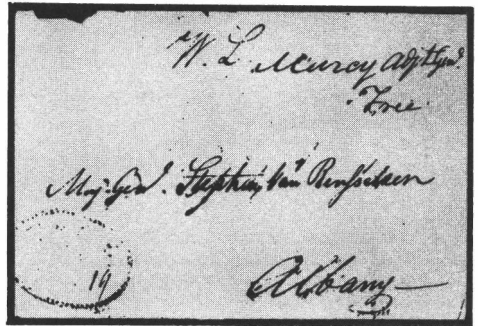 W. L. Marcy Adjt Genl.
Free.
Maj. Genl. Stephen Van Rensselaer
19
Albany